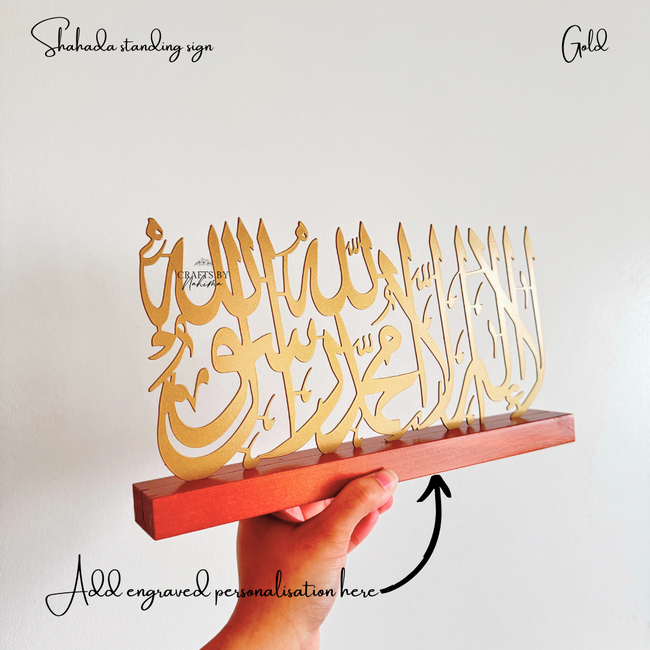 Shahada standing sign
Gold
لا إله إلا الله محمد رسول الله
CRAFTS BY
Nahima
Add engraved personalisation here